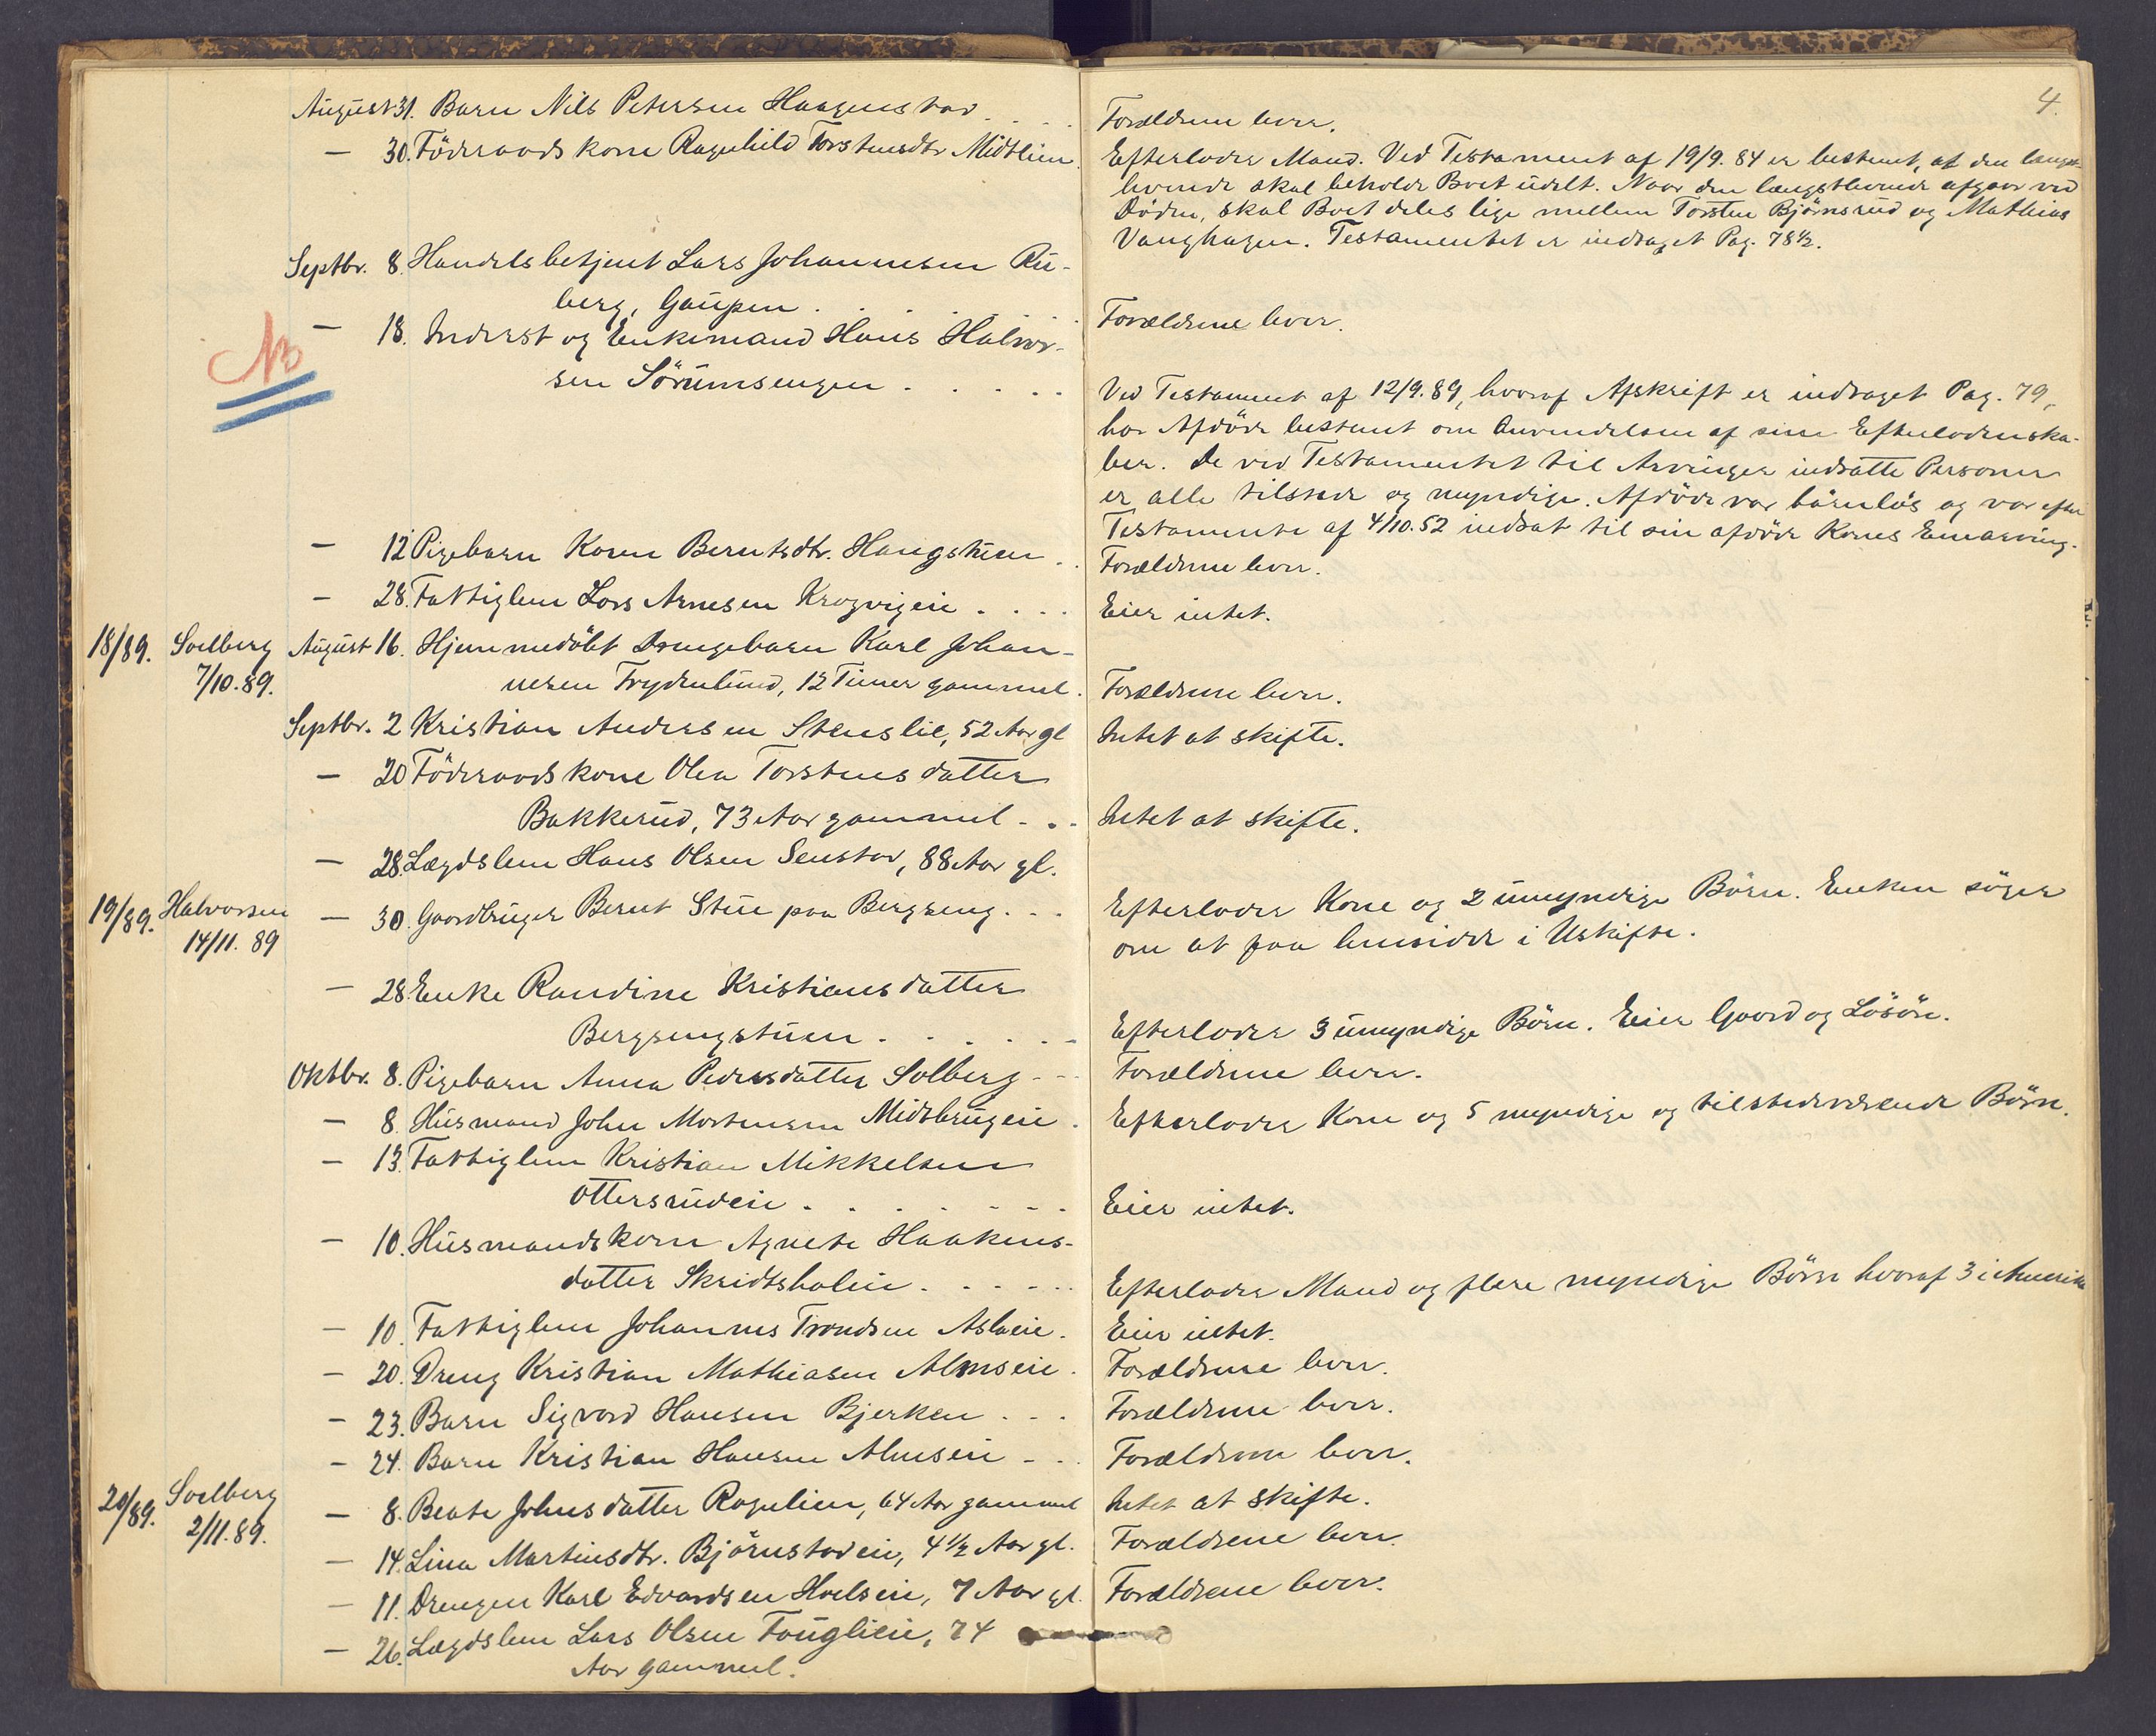 4.
August 31. Barn Nils Petersen Haagenstad . . . .
Forældrene lever.
— 30. Föderaadskone Ragnhild Torstensdtr Midtlien.
Efterlader Mand. Ved Testament af 19/9. 84 er bestemt, at den længst-
levende skal beholde Boet udelt. Naar den længstlevende afgaar ved
Döden, skal Boet deles lige mellem Torsten Björnsrud og Mathias
Vanghagen. Testamentet er indtaget Pag. 78½.
Septbr. 8. Handelsbetjent Lars Johannesen Ru-
berg, Gaupen . . . . . .
Forældrene lever.
NB
— 18. Inderst og Enkemand Hans Halvor-
sen Sörumsengen . . . . .
Ved Testament af 12/9. 89, hvoraf Afskrift er indtaget Pag. 79,
har Afdöde bestemt om Anvendelsen af sine Efterladenska-
ber. De ved Testamentet til Arvinger indsatte Personer
er alle tilstede og myndige. Afdöde var börnlös og var efter
Testamente af 4/10. 52 indsat til sin afdöde Kones Enearving.
— 12 Pigebarn Karen Berntsdtr. Haugstuen . .
Forældrene lever.
— 28. Fattiglem Lars Arnesen Krogvigeie . . . .
Eier intet.
18/89. Soelberg 7/10. 89.
August 16. Hjemmedöbt Drengebarn Karl Johan-
nesen Frydenlund, 12 Timer gammel.
Forældrene lever.
Septbr. 2 Kristian Andersen Stenslie, 52 Aar gl
Intet at skifte.
— 20 Föderaadskone Olea Torstensdatter
Bakkerud, 73 Aar gammel . . .
Intet at skifte.
— 28. Lægdslem Hans Olsen Senstad, 88 Aar gl.
19/89. Halvorsen 14/11. 89
— 30. Gaardbruger Bernt Stue paa Bergseng. . .
Efterlader Kone og 2 umyndige Börn. Enken söger
om at faa hensidde i Uskifte.
— 28. Enke Randine Kristiansdatter
Bergsengstuen . . . . . .
Efterlader 3 umyndige Börn. Eier Gaard og Lösöre.
Oktbr. 8. Pigebarn Anna Pedersdatter Solberg . .
Forældrene lever.
— 8. Husmand John Mortensen Midtbrugeie .
Efterlader Kone og 5 myndige og tilstedeværende Börn.
— 13. Fattiglem Kristian Mikkelsen
Ottersrudeie . . . . . . .
Eier intet.
— 10. Husmandskone Agnete Haakens-
datter Skridtsholeie . . . . . .
Efterlader Mand og flere myndige Börn hvoraf 3 i Amerika
— 10. Fattiglem Johannes Trondsen Aslaeie.
Eier intet.
— 20. Dreng Kristian Mathiasen Almseie .
Forældrene lever.
— 23. Barn Sigvard Hansen Bjerken . . .
Forældrene lever.
— 24. Barn Kristian Hansen Almseie . . .
Forældrene lever.
20/89. Soelberg 2/11. 89.
— 8. Beate Johnsdatter Rognlien, 64 Aar gammel
Intet at skifte.
— 14. Lina Martinsdtr. Björnstadeie, 4½ Aar gl.
Forældrene lever.
— 11. Drengen Karl Edvardsen Hoelseie, 7 Aar gl.
Forældrene lever.
— 26. Lægdslem Lars Olsen Fouglieie, 74
Aar gammel.